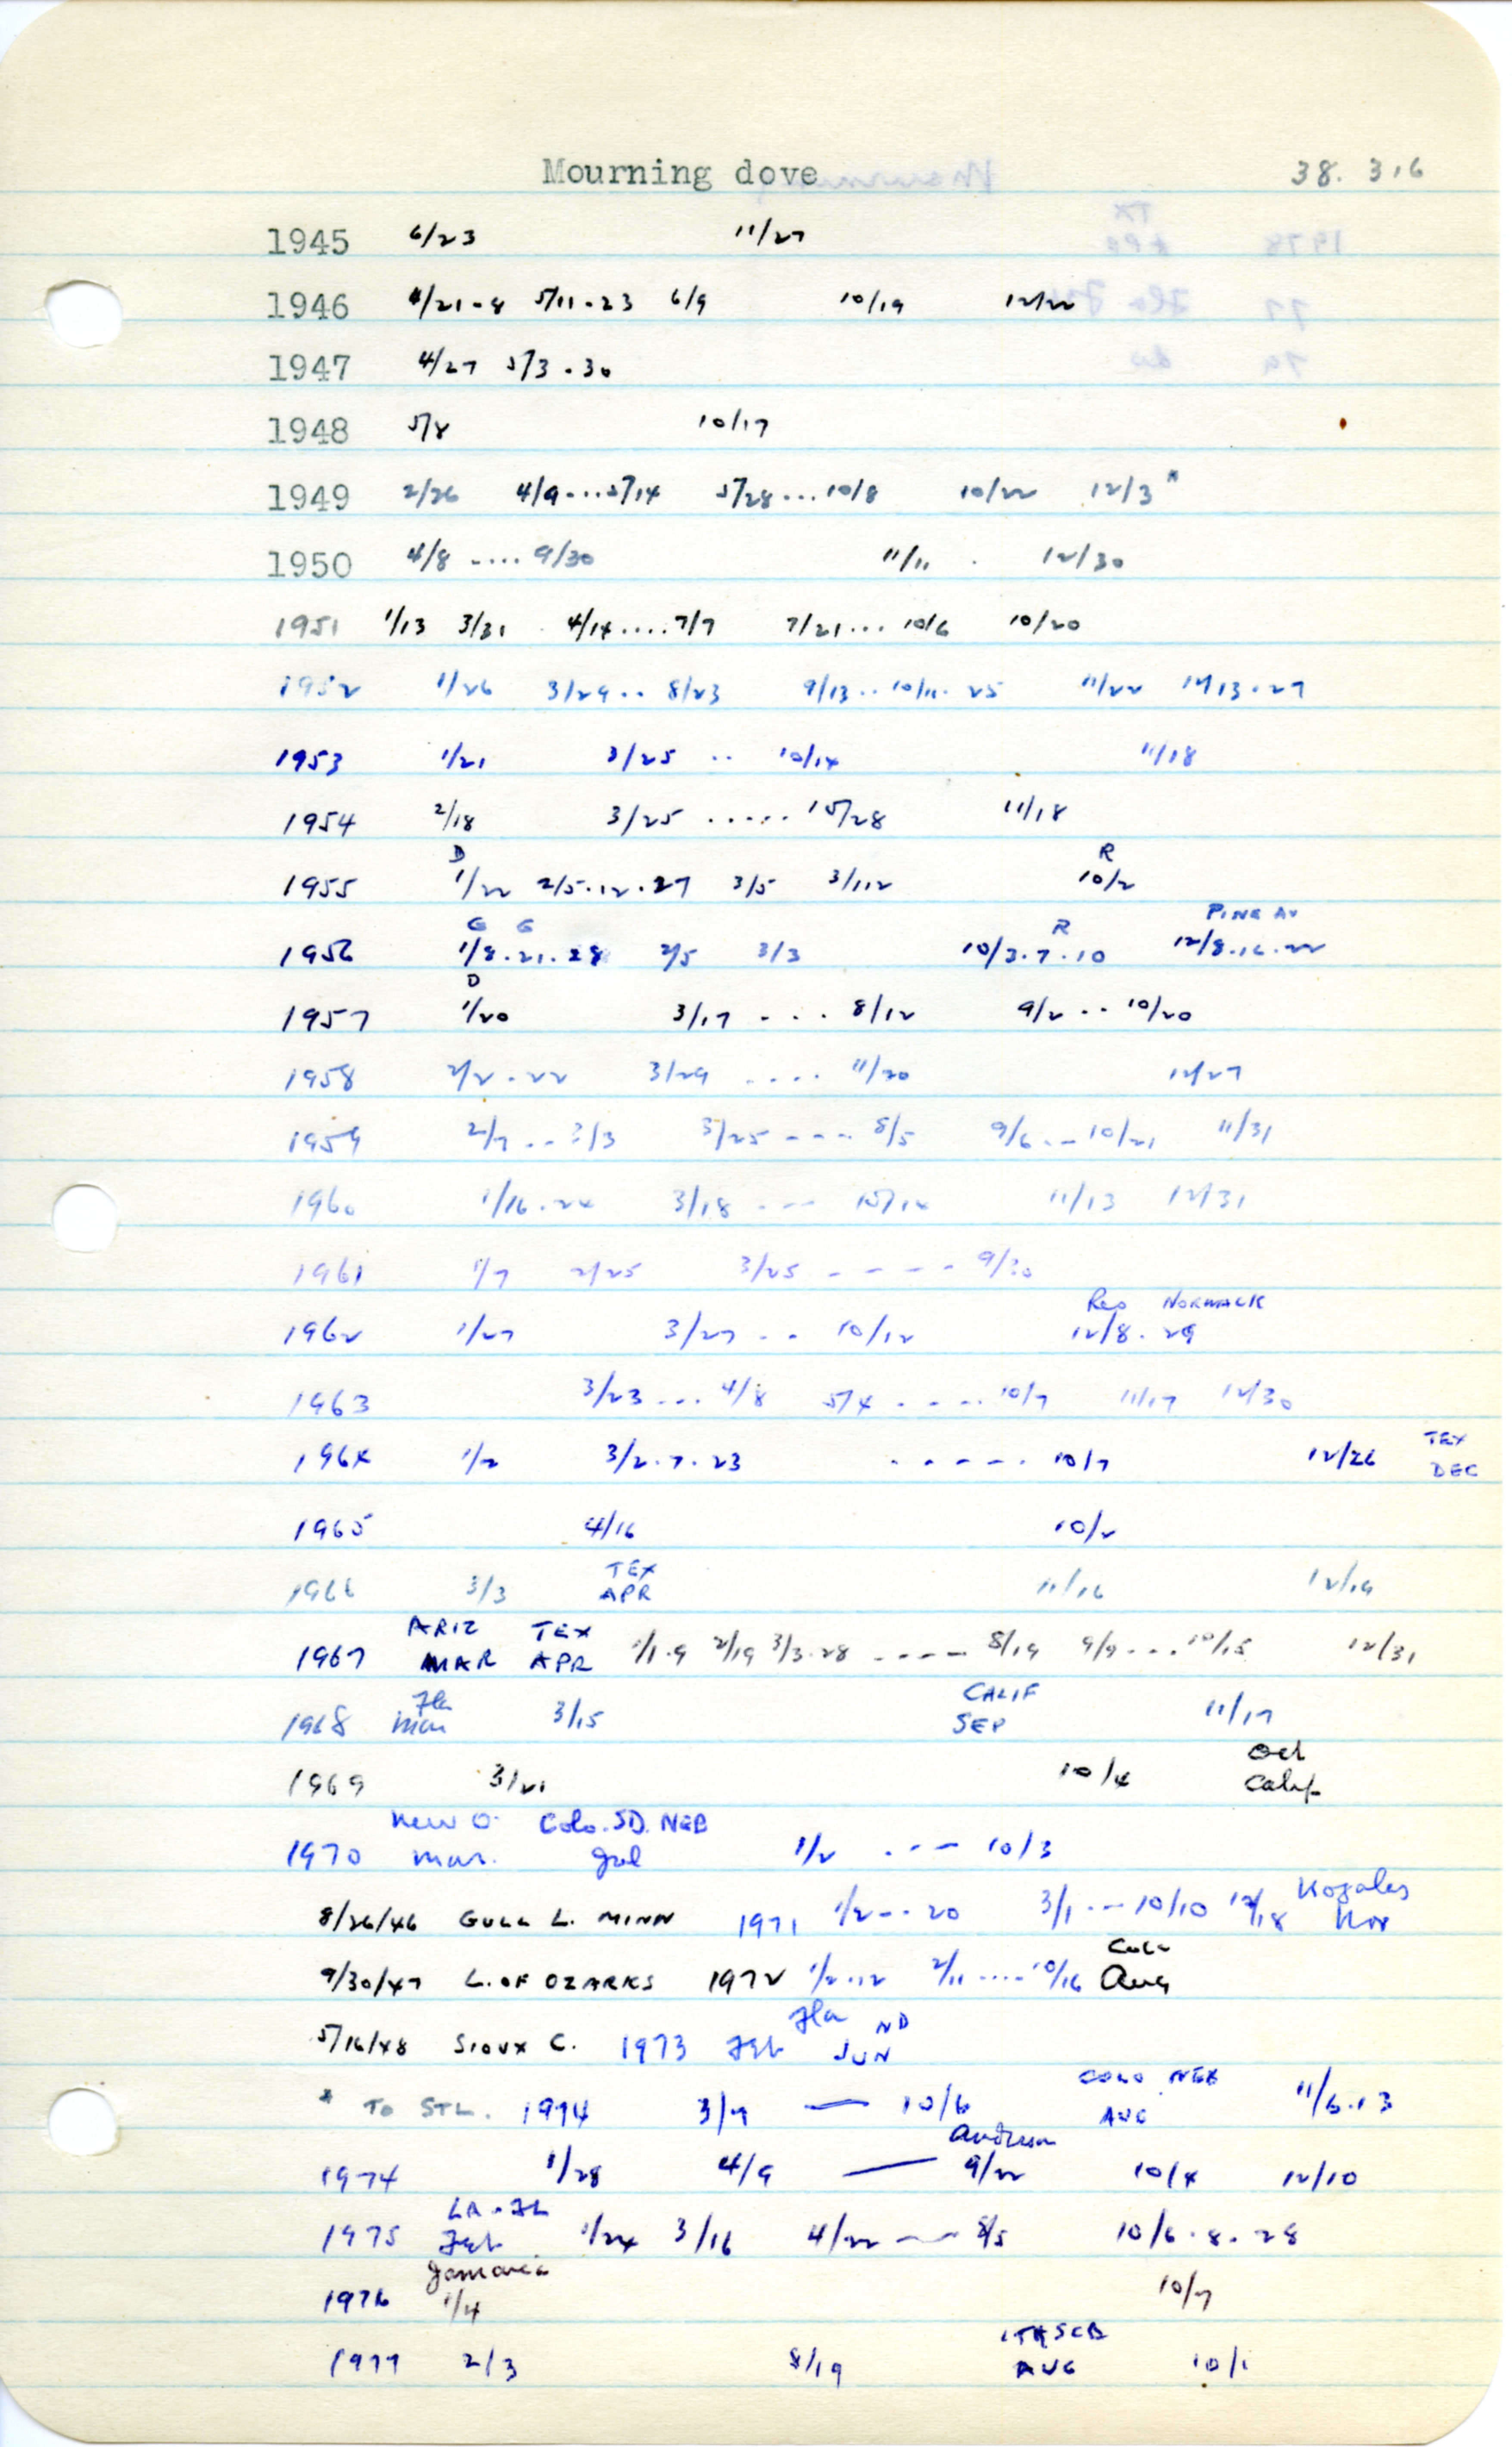 Mourning dove 38.316
1945 6/23 11/27
1946 4/21-8 5/11-23 6/9 10/19 12/22
1947 4/27 5/3.30
1948 5/8 10/17
1949 2/26 4/9...5/14 5/28...10/8 10/22 12/3*
1950 4/8 .... 9/30 11/11 . 12/30
1951 1/13 3/31 4/14....7/7 7/21... 10/6 10/20
1952 1/26 3/29.. 8/23 9/13..10/11.25 11/22 12/13.27
1953 1/21 3/25 .. 10/14 11/18
1954 2/18 3/25 ..... 10/28 11/18
D R
1955 1/22 2/5.12.27 3/5 3/12 10/2
G G R PINE AV
1956 1/8.21.28 2/5 3/3 10/3.7.10 12/8.16.22
D
1957 1/20 3/17 ... 8/12 9/2 .. 10/20
1958 2/2.22 3/29 .... 11/20 12/27
1959 2/7..3/3 3/25 ---- 8/5 9/6 .-- 10/21 11/31
1960 1/16.24 3/18 --- 10/14 11/13 12/31
1961 1/7 2/25 3/25 ----- 9/30
Res NORWALK
1962 1/27 3/27 .. 10/12 12/8.29
1963 3/23 ... 4/8 5/4 ..... 10/7 11/17 12/30
TEX
1964 1/2 3/2.7.23 ..... 10/7 12/26 DEC
1965 4/16 10/2
TEX
1966 3/3 APR 11/16 12/19
ARIZ TEX
1967 MAR APR 1/1.9 2/19 3/3.28 ----- 8/19 9/9 --- 10/15 12/31
Fla CALIF
1968 Mar 3/15 SEP 11/17
Oct
1969 3/21 10/4 Calif
New O. Colo. SD. NEB
1970 Mar. Jul 1/2 .-- 10/3
Nogales
8/26/46 GULL L. MINN 1971 1/2--.20 3/1.--10/10 12/18 Nov
Colo
9/30/47 L. OF OZARKS 1972 1/2.12 2/11 .....10/16 Aug
Fla ND
5/16/48 SIOUX C. 1973 Feb JUN
COLO NEB
* TO STL. 1974 3/9 — 10/6 AUG 11/6.13
Anderson
1974 1/28 4/9 — 9/22 10/4 12/10
LA - FL
1975 Feb 1/24 3/16 4/22 --- 8/5 10/6.8.28
Jamaica
1976 1/4 10/7
1977 2/3 8/19 AUG 10/1